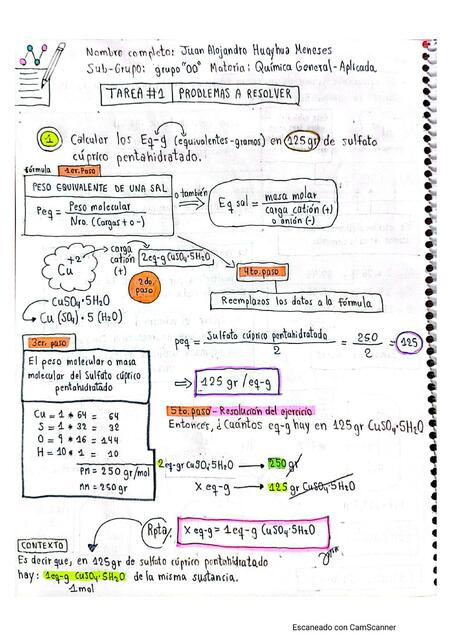 Nombre completo: Juan Alejandro Huayhua Meneses
Sub-Grupo: grupo "00" Materia: Química General-Aplicada
TAREA #1 | PROBLEMAS A RESOLVER
1 Calcular los Eq-g (equivalentes-gramos) en 125 gr de sulfato
cúprico pentahidratado.
Fórmula 1er. Paso
PESO EQUIVALENTE DE UNA SAL
Peq = Peso molecular / Nro. (Cargas + o -)
o también
Eq sal = masa molar / carga catión (+) o anión (-)
Cu +2
carga
catión
(+)
2eq-g CuSO4·5H2O
2do.
paso
CuSO4·5H2O
Cu (SO4)·5 (H2O)
4to. paso
Reemplazos los datos a la fórmula
peq = Sulfato cúprico pentahidratado / 2 = 250 / 2 = 125
⇒ 125 gr/eq-g
3er. paso
El peso molecular o masa
molecular del Sulfato cúprico
pentahidratado
Cu = 1 * 64 = 64
S = 1 * 32 = 32
O = 9 * 16 = 144
H = 10 * 1 = 10
pm = 250 gr/mol
mm = 250 gr
5to. paso - Resolución del ejercicio
Entonces, ¿Cuántos eq-g hay en 125 gr CuSO4·5H2O
2eq-gr CuSO4·5H2O → 250 gr
X eq-g → 125 gr CuSO4·5H2O
Rpta: X eq-g = 1eq-g CuSO4·5H2O
CONTEXTO
Es decir que, en 125 gr de sulfato cúprico pentahidratado
hay: 1eq-g CuSO4·5H2O de la misma sustancia.
1mol
Escaneado con CamScanner